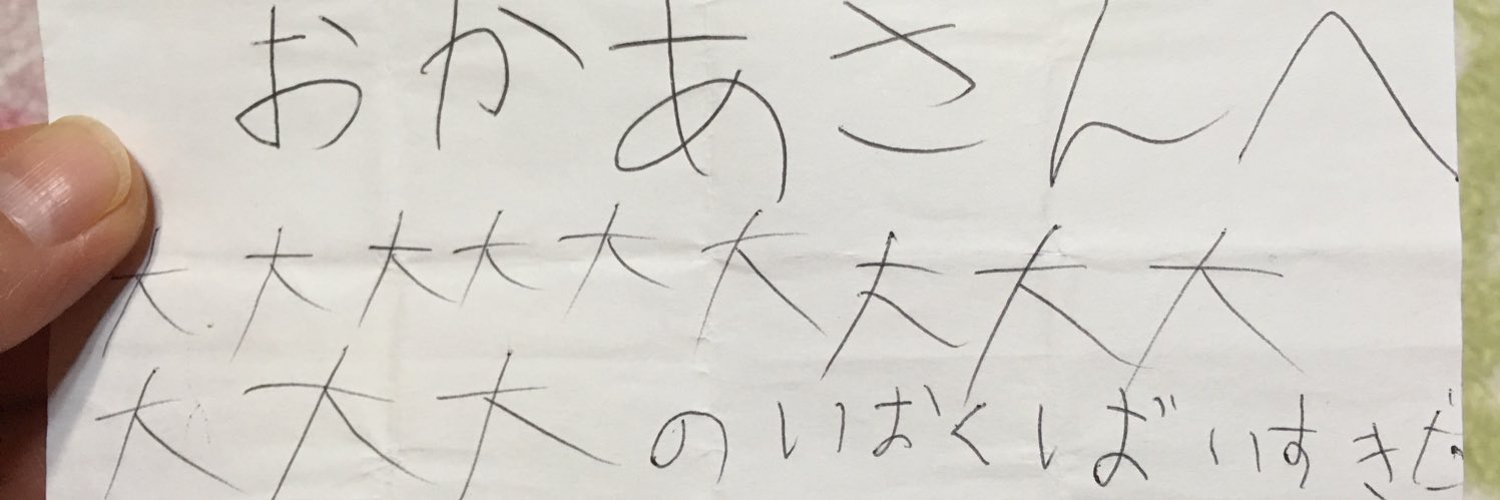 おかあさんへ
大大大大大大大大大
大大大のいおくばいすきだ